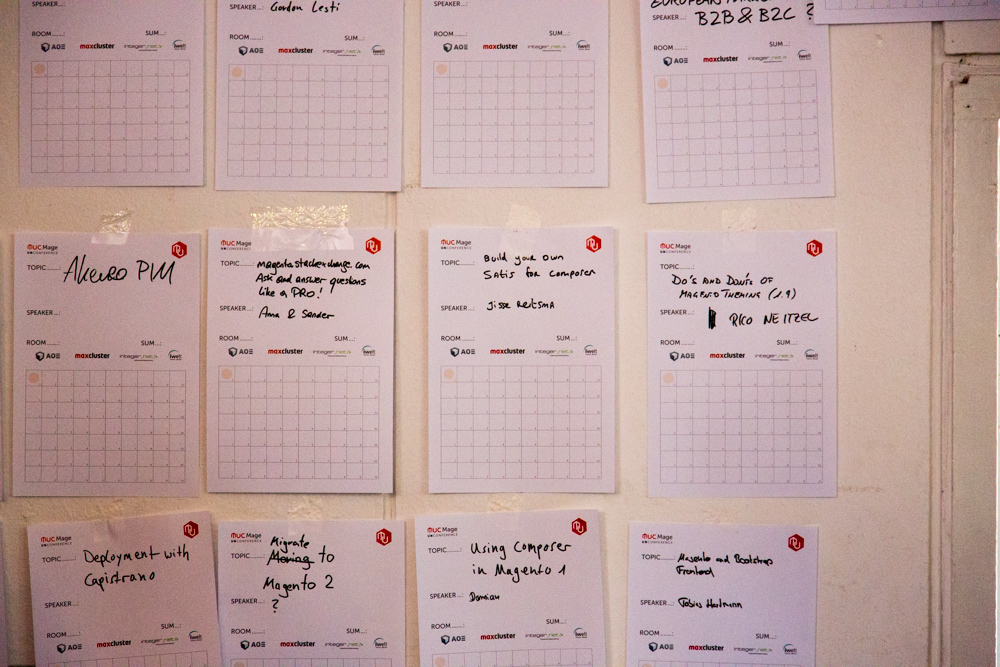 SPEAKER....: Gordon Lesti
ROOM........:
SUM....:
AOE maxcluster integer_net:> iwelt
ROOM........:
SUM....:
AOE maxcluster integer_net:> iwelt
ROOM........:
SUM....:
AOE maxcluster integer_net:> iwelt
SPEAKER....: B2B & B2C ?
ROOM........:
SUM....:
AOE maxcluster integer_net:> iwelt
MUC Mage
UNCONFERENCE
TOPIC.......: Akeneo PIM
SPEAKER....:
ROOM........:
SUM....:
AOE maxcluster integer_net:> iwelt
MUC Mage
UNCONFERENCE
TOPIC.......: magento.stackexchange.com
Ask and answer questions
like a PRO!
SPEAKER....: Anna & Sander
ROOM........:
SUM....:
AOE maxcluster integer_net:> iwelt
MUC Mage
UNCONFERENCE
TOPIC.......: Build your own
Satis for composer
SPEAKER....: Jisse Reitsma
ROOM........:
SUM....:
AOE maxcluster integer_net:> iwelt
MUC Mage
UNCONFERENCE
TOPIC.......: Do's and Dont's of
Magento Theming (1.9)
SPEAKER....: RICO NEITZEL
ROOM........:
SUM....:
AOE maxcluster integer_net:> iwelt
MUC Mage
UNCONFERENCE
TOPIC.......: Deployment with
Capistrano
SPEAKER....:
ROOM........:
SUM....:
AOE maxcluster integer_net:> iwelt
MUC Mage
UNCONFERENCE
TOPIC.......: Migrate
to
Magento 2
SPEAKER....: ?
ROOM........:
SUM....:
AOE maxcluster integer_net:> iwelt
MUC Mage
UNCONFERENCE
TOPIC.......: Using Composer
in Magento 1
SPEAKER....: Damian
ROOM........:
SUM....:
AOE maxcluster integer_net:> iwelt
MUC Mage
UNCONFERENCE
TOPIC.......: Magento and Bootstrap
Frontend
SPEAKER....: Tobias Hartmann
ROOM........:
SUM....:
AOE maxcluster integer_net:> iwelt